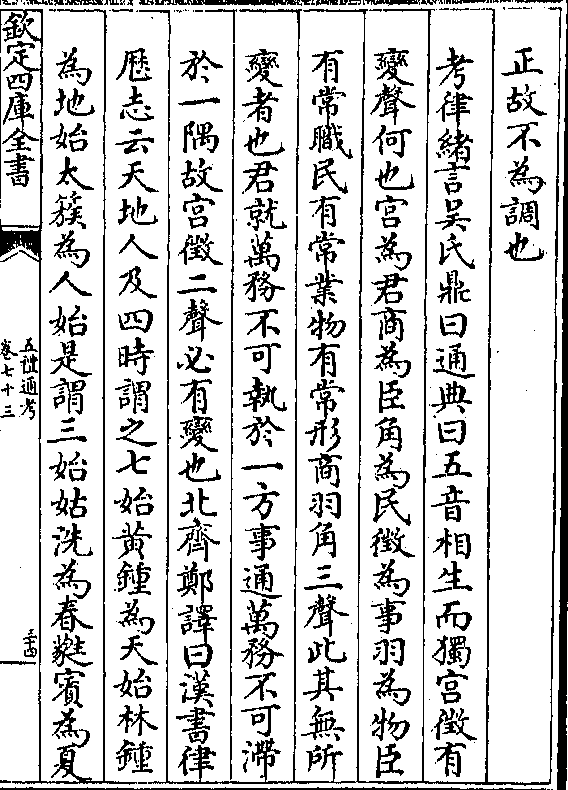 正故不為調也
考律緒言吳氏鼎曰通典曰五音相生而獨宮徵有
變聲何也宮為君商為臣角為民徵為事羽為物臣
有常職民有常業物有常形商羽角三聲此其無所
變者也君就萬務不可執於一方事通萬務不可滯
於一隅故宮徵二聲必有變也北齊鄭譯曰漢書律
歴志云天地人及四時謂之七始黄鍾為天始林鍾
為地始太簇為人始是謂三始姑洗為春蕤賓為夏
欽定四庫全書
五禮通考
卷七十三
三十四